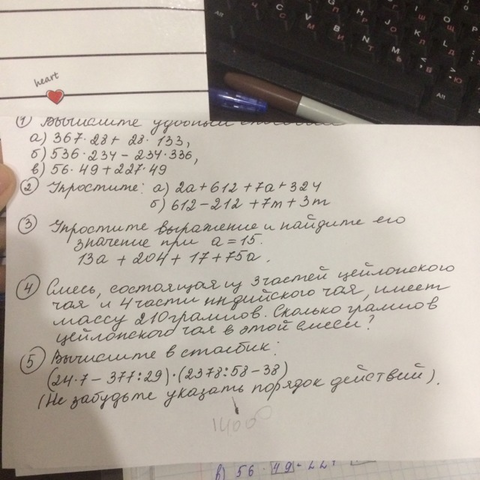 heart
1) Вычислите удобным способом
а) 367·28 + 28·133,
б) 536·234 - 234·336,
в) 56·49 + 227·49
2) Упростите: а) 2a + 612 + 7a + 324
б) 612 - 212 + 7m + 3m
3) Упростите выражение и найдите его
значение при a = 15.
13a + 204 + 17 + 75a.
4) Смесь, состоящая из 3 частей цейлонского
чая и 4 части индийского чая, имеет
массу 210 граммов. Сколько граммов
цейлонского чая в этой смеси?
5) Вычислите в столбик:
(24·7 - 377:29)·(2378:58 - 38)
(Не забудьте указать порядок действий).
в) 56·49